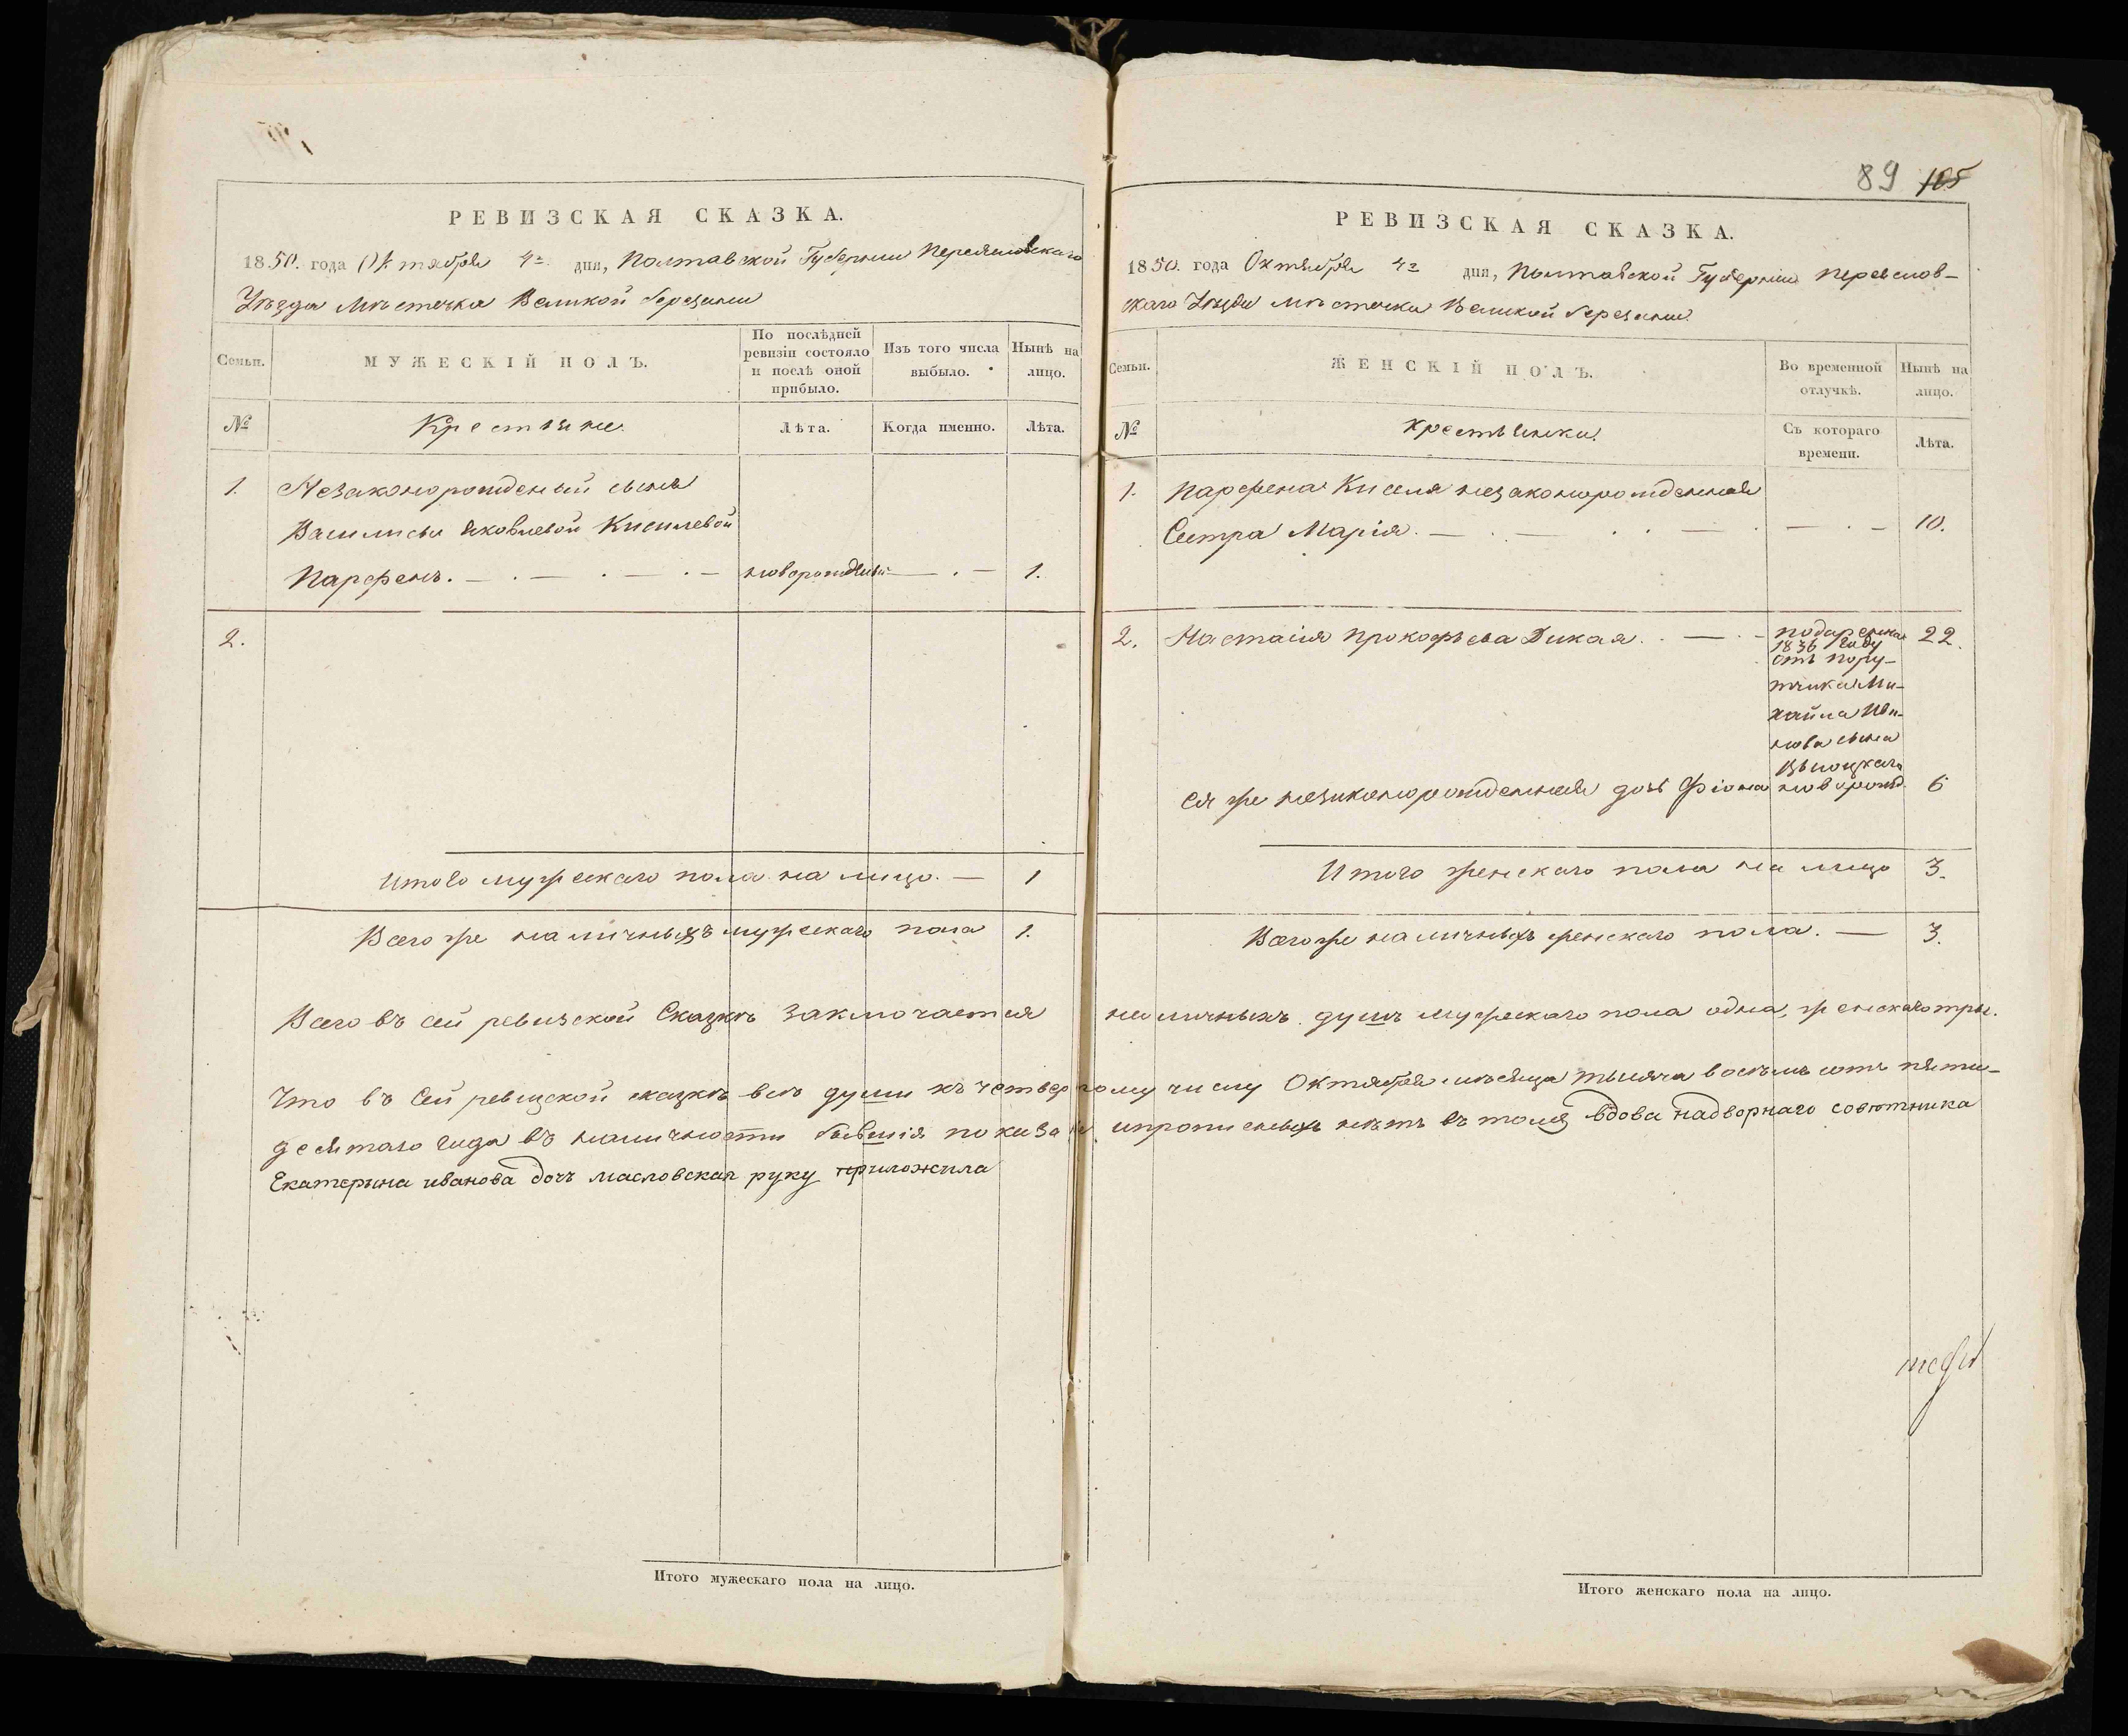 РЕВИЗСКАЯ СКАЗКА.
1850. года Октября 4го дня, Полтавской Губернии Переяславскаго
Уѣзда Мѣстечка Великой березани
Семьи.
МУЖЕСКІЙ ПОЛЪ.
По послѣдней ревизіи состояло и послѣ оной прибыло.
Изъ того числа выбыло.
Нынѣ на лицо.
№
Крестьяне.
Лѣта.
Когда именно.
Лѣта.
1. Незаконорожденый сынъ
Василисы Яковлевой Киселевой
Парфенъ. — . — . — . — новорожденый — . — 1.
2.
Итого мужескаго пола на лицо. — 1
Всего же наличныхъ мужескаго пола 1.
89 105
РЕВИЗСКАЯ СКАЗКА.
1850. года Октября 4го дня, Полтавской Губерніи Переяслов-
скаго Уѣзда мѣстечка Великой березани.
Семьи.
ЖЕНСКІЙ ПОЛЪ.
Во временной отлучкѣ.
Нынѣ на лицо.
№
Крестьянки.
Съ котораго времени.
Лѣта.
1. Парфена Киселя незаконорожденная
Сестра Марія. — . — . . — . — . — 10.
2. Настасія Прокофьева Дикая. . — . — подарена 22.
1836 году
отъ пору-
тчика Ми-
хайла Ива-
нова сына
Ея же незаконорожденная дочь Фіона новорожд. 6
Итого женскаго пола на лицо 3.
Всего же наличныхъ женскаго пола. — 3.
Всего въ сей ревизской Сказкѣ заключается наличныхъ душъ мужескаго пола одна, женскаго три.
Что въ сей ревизской сказкѣ всѣ души къ четвертому числу Октября мѣсяца тысяча восемь сотъ пяти-
десятаго года въ наличности бывшія показаны и прописныхъ нѣтъ въ томъ вдова надворнаго совѣтника
Екатерина иванова дочъ масловская руку приложила
Итого мужескаго пола на лицо.
Итого женскаго пола на лицо.